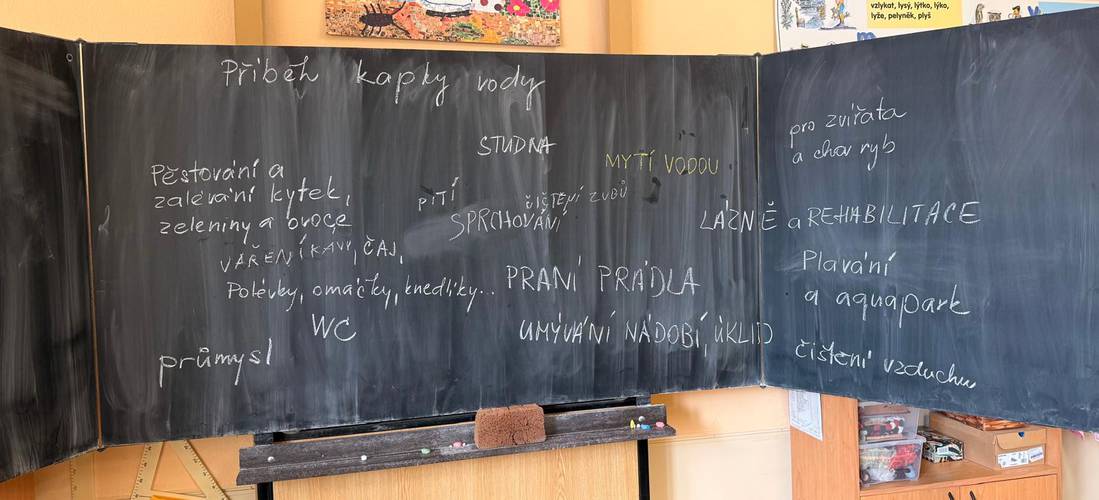 vzlykat, lysý, lýtko, lýko,
lyže, pelyněk, plyš
Příběh kapky vody
STUDNA
MYTÍ VODOU
Pěstování a
zalévání kytek,
zeleniny a ovoce
PITÍ
ČIŠTĚNÍ ZUBŮ
SPRCHOVÁNÍ
VAŘENÍ KÁVY, ČAJ,
Polévky, omáčky, knedlíky...
PRANÍ PRÁDLA
WC
UMÝVÁNÍ NÁDOBÍ, ÚKLID
průmysl
pro zvířata
a chov ryb
LÁZNĚ a REHABILITACE
Plavání
a aquapark
čištění vzduchu